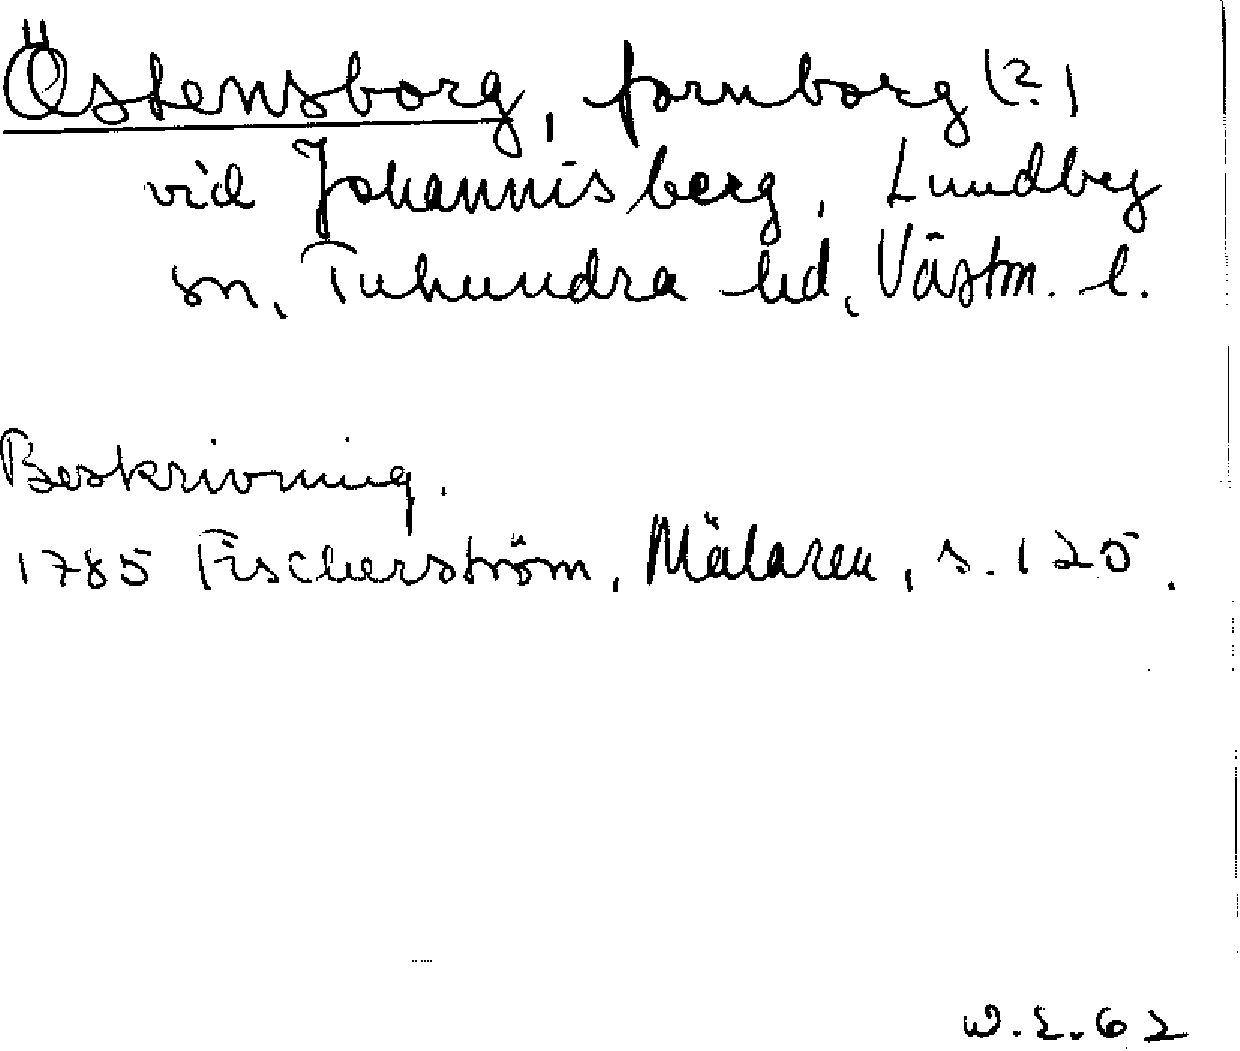 Östensborg, fornborg (?)
vid Johannisberg, Lundby
sn, Tuhundra hd, Västm. l.
Beskrivning.
1785 Fischerström, Mälaren, s. 125.
W.E. 62